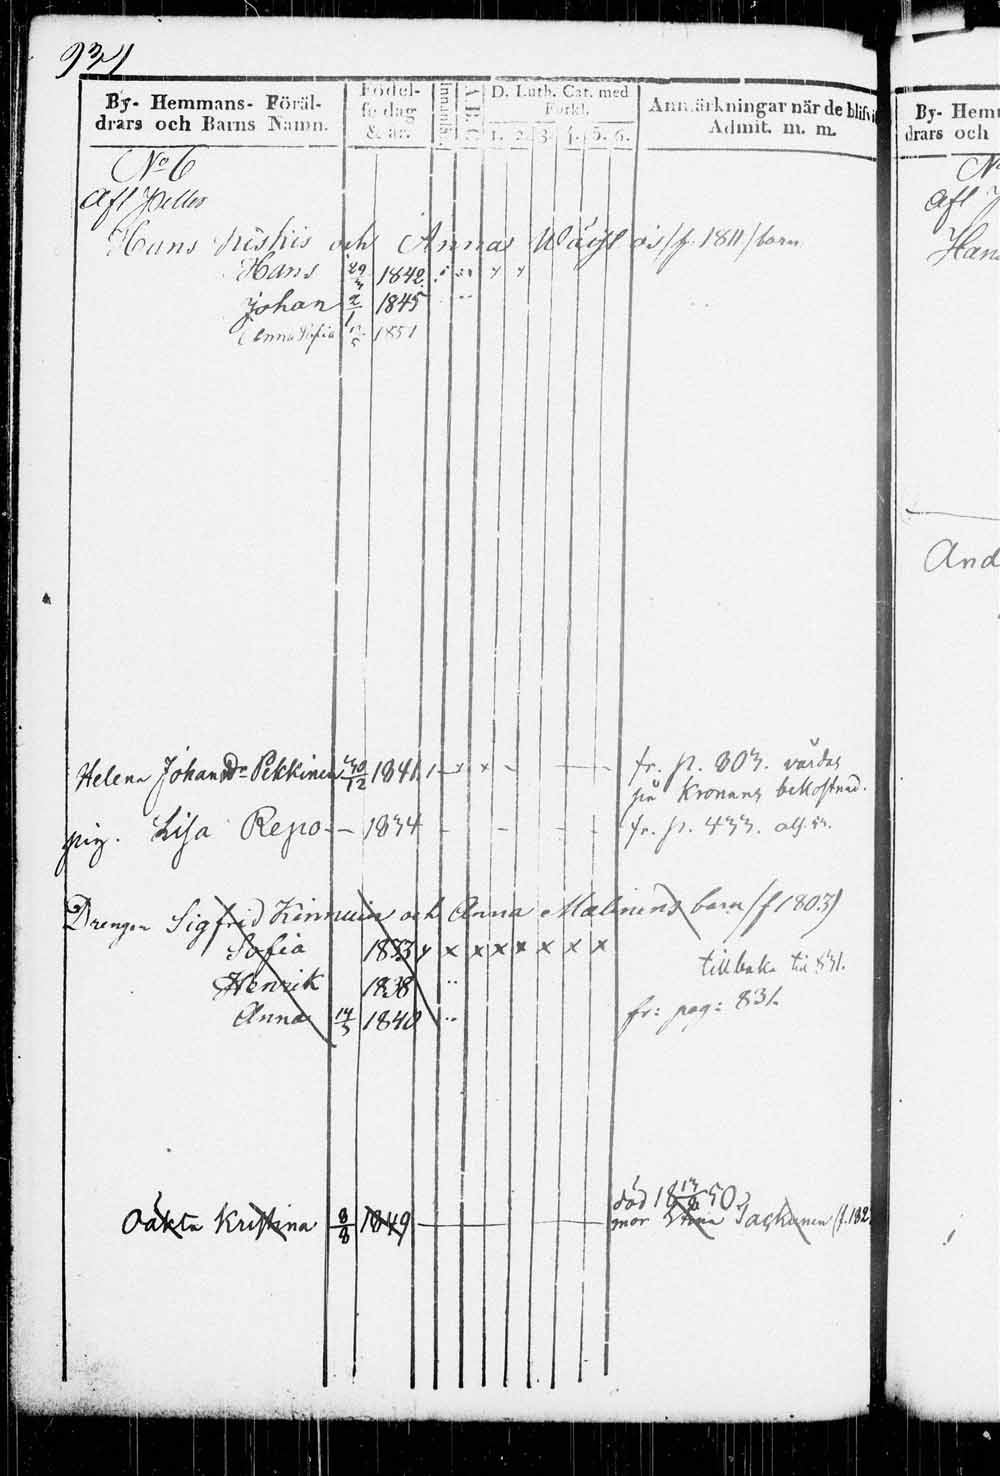 931
By- Hemmans- Föräl-
drars och Barns Namn.
Födel-
se dag
& år.
Innanlä.
A B C
D. Luth. Cat. med
Förkl.
1. 2. 3. 4. 5. 6.
Anmärkningar när de blifvi
Admit. m. m.
No 6
Hans och Annas f. 1811 barn
Hans 29 1842
Johan 2/1 1845
Anna Sofia 1851
Helena Johansdr Pekkinen 30/12 1841
fr. p. 803. vårdas
på Kronans bekostnad.
pig. Lisa Repo 1834
fr. p. 433.
Drengen Sigfrid Kinnuin och Anna Malinens barn (f 1803)
Sofia 1833 x x x x x x x
tillbaka till 831.
Henrik 1838
Anna 14/5 1840
fr: pag: 831.
död 18 13/8 50
Oäkta Kristina 8/8 1849
mor Stina (f. 182
By- Hemm
drars och
N
Han
And